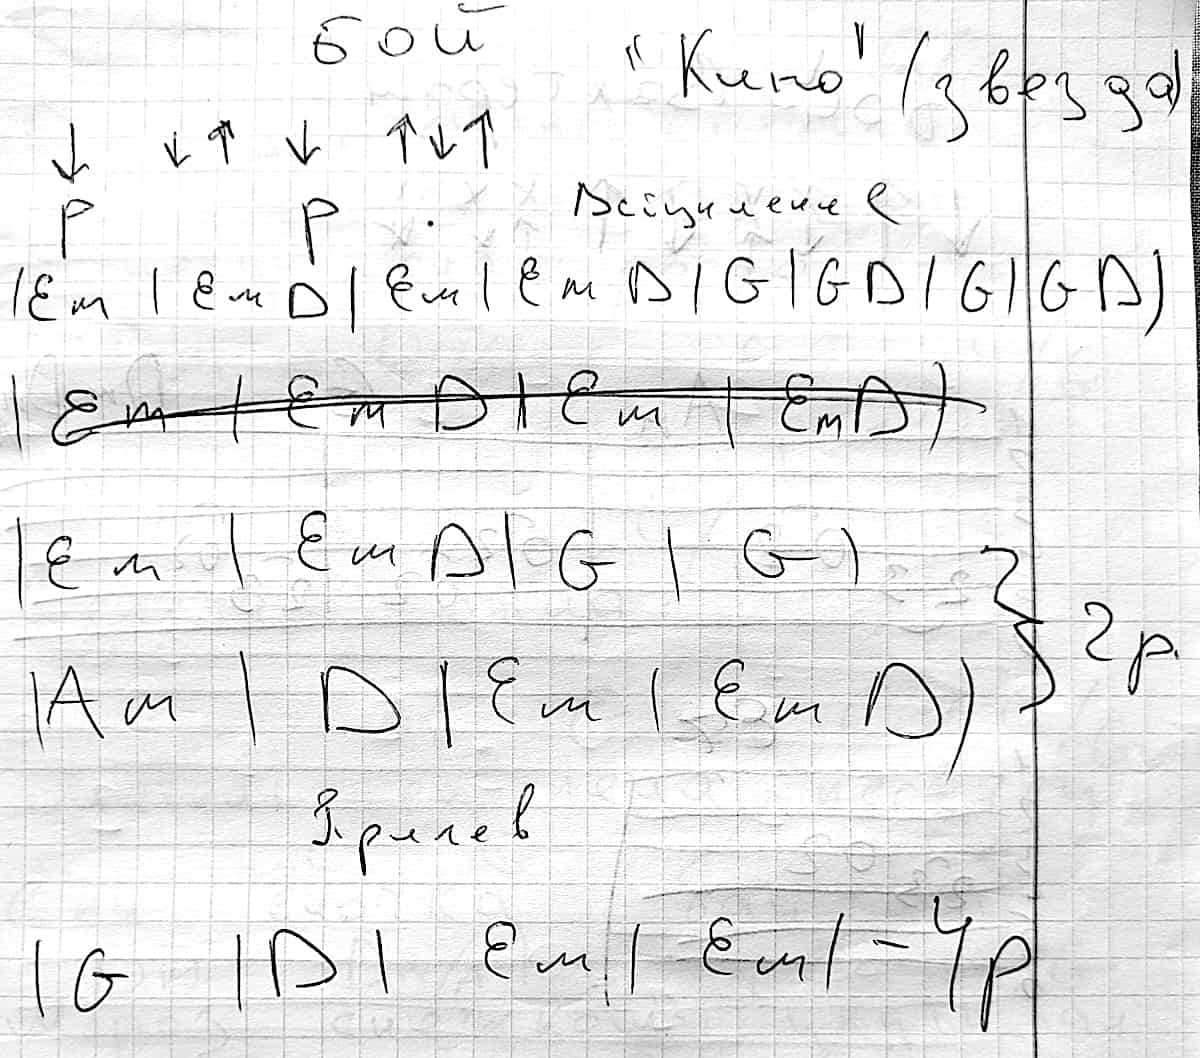 бой
"Кино" (звезда)
↓ ↓↑ ↓ ↑↓↑
P P .
Вступление
|Em | Em D | Em | Em D | G | G D | G | G D |
| Em | Em D | Em | Em D |
| Em | Em D | G | G |
| Am | D | Em | Em D |
2 р.
Припев
| G | D | Em | Em | - 4 р